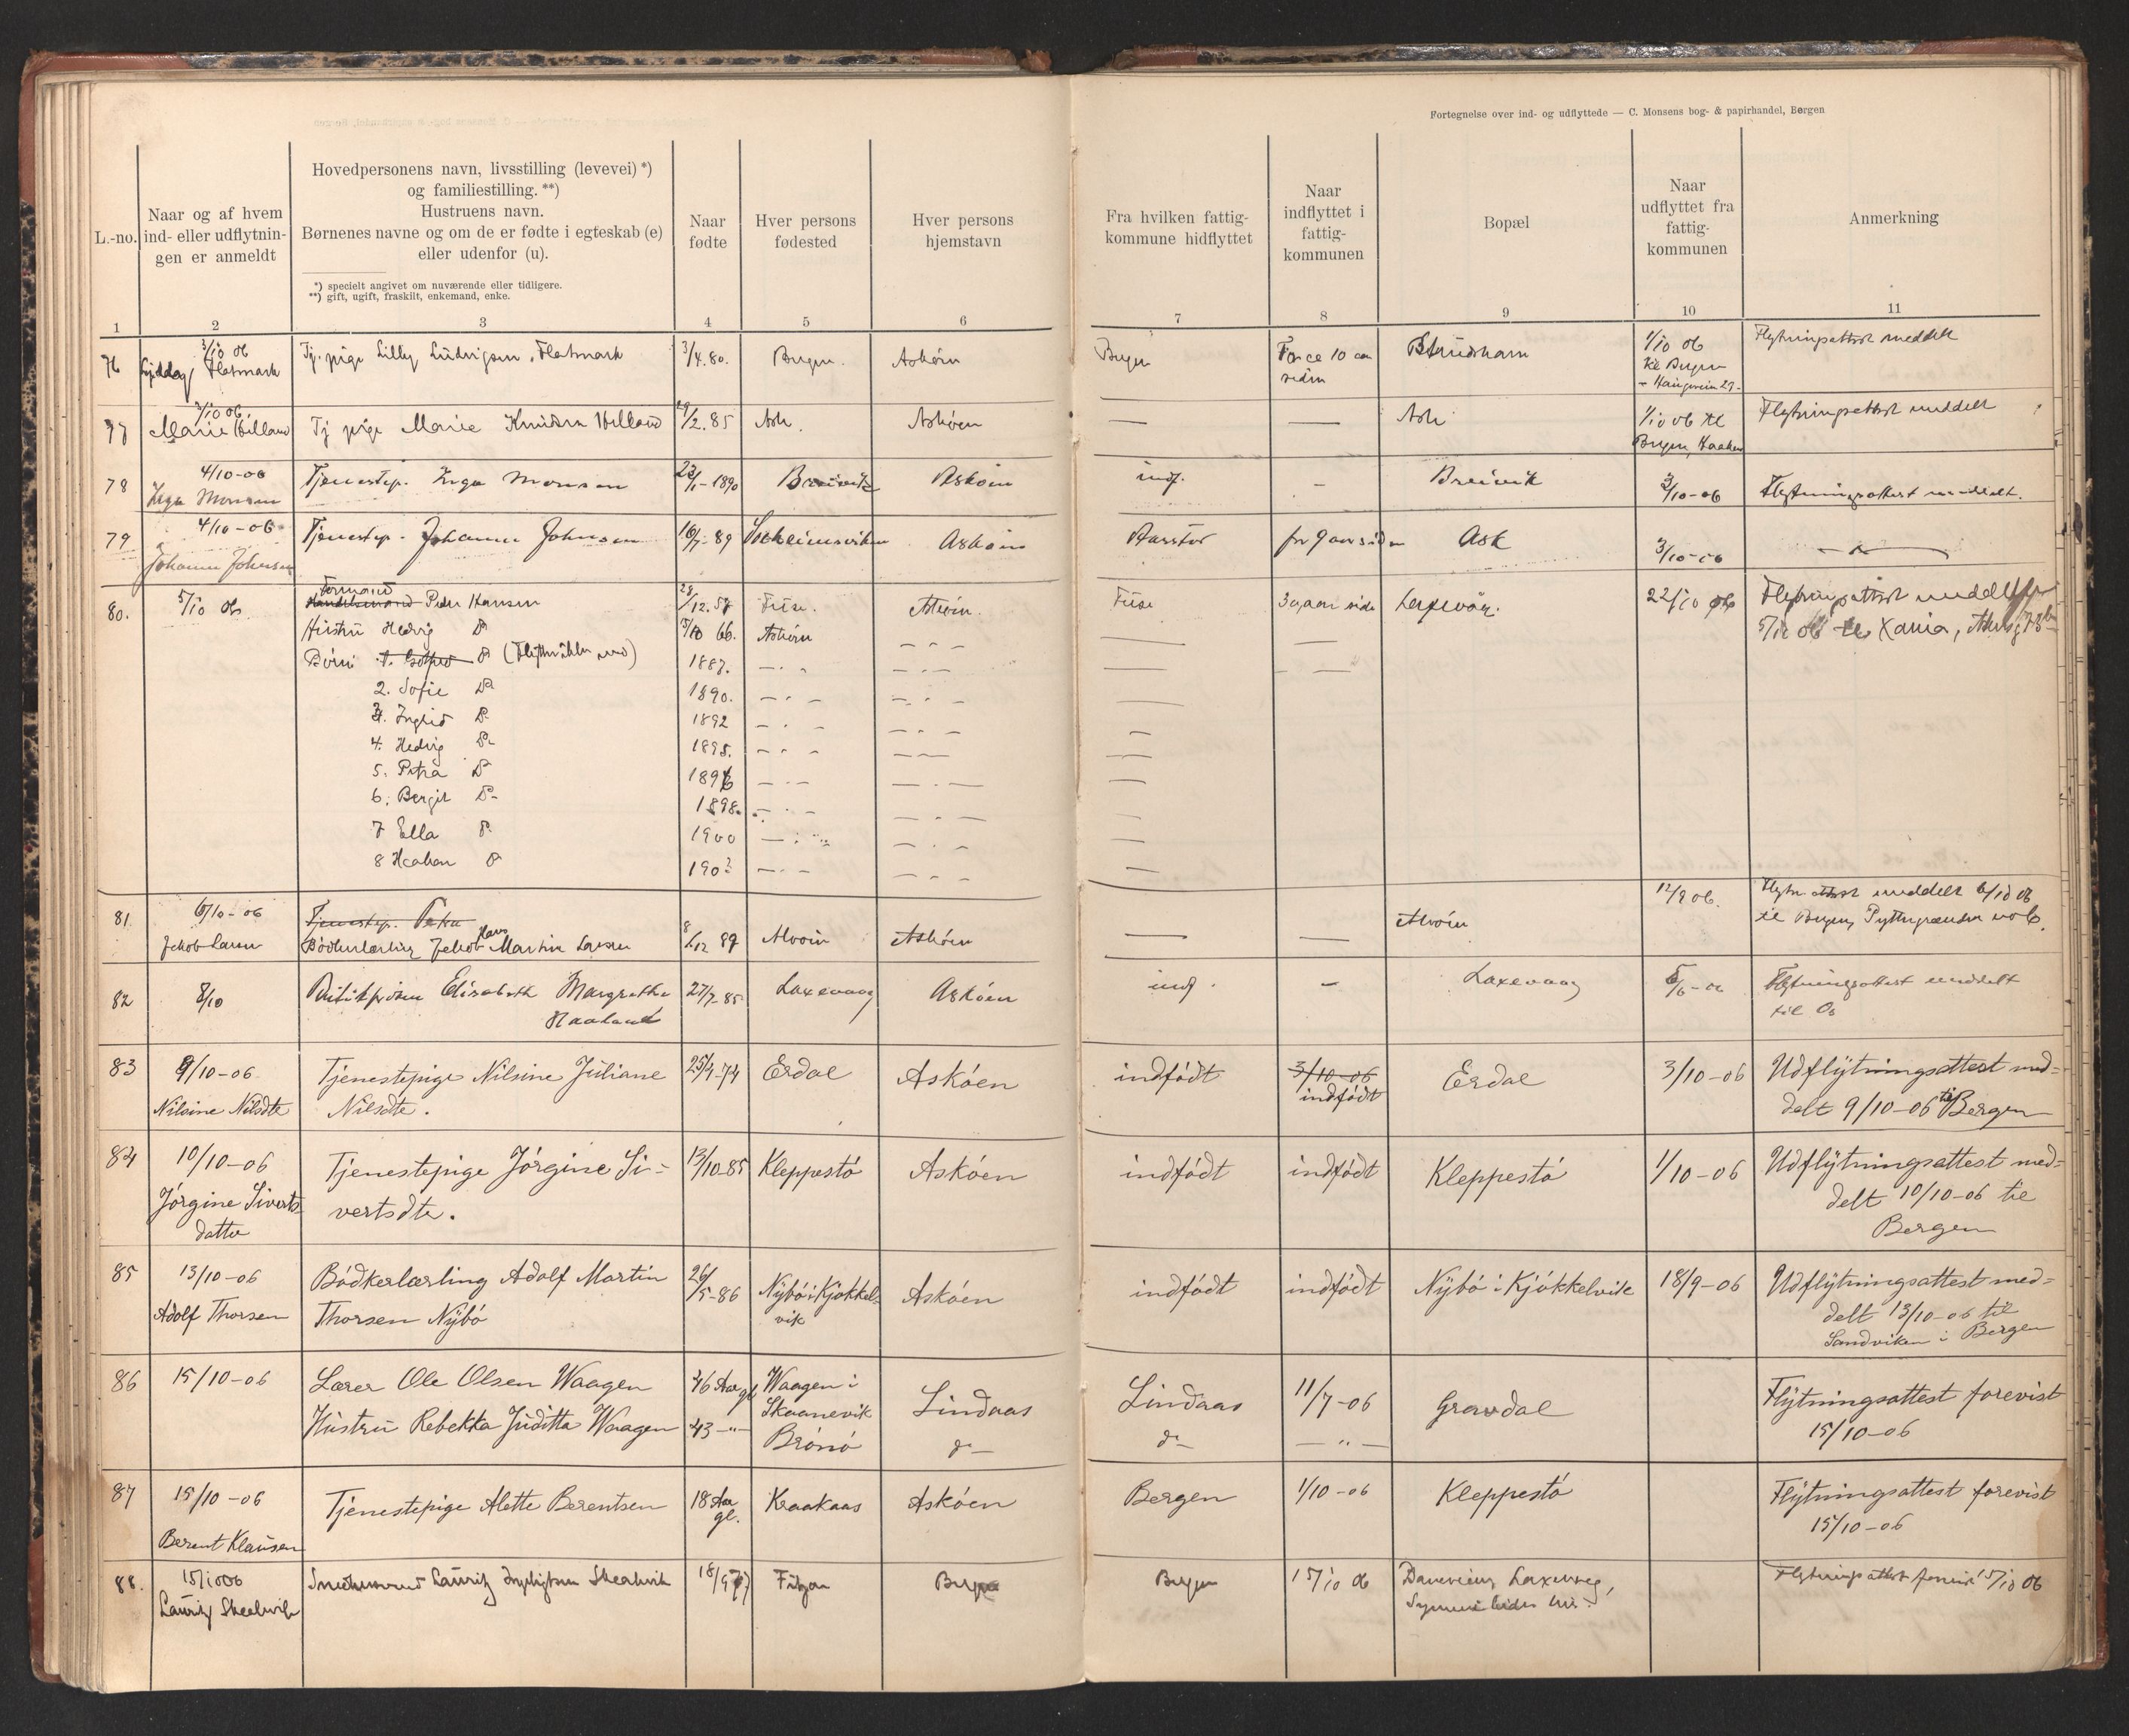 Fortegnelse over ind- og udflyttede — C. Monsens bog- & papirhandel, Bergen
L.-no.
Naar og af hvem
ind- eller udflytnin-
gen er anmeldt
Hovedpersonens navn, livsstilling (levevei) *)
og familiestilling. **)
Hustruens navn.
Børnenes navne og om de er fødte i egteskab (e)
eller udenfor (u).
*) specielt angivet om nuværende eller tidligere.
**) gift, ugift, fraskilt, enkemand, enke.
Naar
fødte
Hver persons
fødested
Hver persons
hjemstavn
Fra hvilken fattig-
kommune hidflyttet
Naar
indflyttet i
fattig-
kommunen
Bopæl
Naar
udflyttet fra
fattig-
kommunen
Anmerkning
1 2 3 4 5 6 7 8 9 10 11
76 3/10 06 Tj. pige Lilly Ludvigsen, Flatmark 3/4.80. Bergen. Askøen Bergen For ca 10 aar 1/10 06 Flytningsattest meddelt
Flatmark siden til Bergen
77 3/10 06 Tj pige Marie Knudsen Helland /2.85 Ask. Askøen — — Ask 1/10 06 til Flytningsattest meddelt
Marie Helland Bergen
78 4/10-06 Tjenestep. Inga Monsen 23/1-1890 Breivik Askøen indf. - Breivik 3/10-06 Flytningsattest meddelt.
Inga Monsen
79 4/10-06 Tjenestep. Johanne Johnsen 16/7-89 Solheimsviken Askøen Aarstad for 9 aar siden Ask 3/10-06 — " —
Johanne Johnsen
80. 5/10 06 Formand
Handelsmand Peder Hansen 28/12.58 Fuse. Askøen. Fuse 30 aar side Laxevåg. 22/10 06 Flytningsattest meddelt
Hustru Hedvig Do /10 66. Askøen — - - - — — 5/10 06 til Xania,
Børn 1. Do 1887. - . -
2. Sofie Do 1890. - . -
3. Ingrid Do 1892 - . -
4. Hedvig Do 1895. - . -
5. Petra Do 1896 - . -
6. Bergit Do 1898. - . -
7 Ella Do 1900 - . -
8 Haakon Do 190 - . -
81. 6/10-06 Tjenestep. 12/9 06. Flytn. attest meddelt 6/10 06
Jakob Larsen Bødkerlærling Jakob Hans Martin Larsen 8/12 89 Alvøen Askøen — — Alvøen til Bergen,
82 8/10 Elisabeth Margrethe 27/7-85 Laxevaag Askøen indf. - Laxevaag /6-06 Flytningsattest meddelt
Haaland til Os
83 9/10-06 Tjenestepige Nilsine Juliane 25/4-74 Erdal Askøen indfødt 3/10-06 Erdal 3/10-06 Udflytningsattest med-
Nilsine Nilsdte Nilsdte. indfødt delt 9/10-06 til Bergen
84 10/10-06 Tjenestepige Jørgine Si- 13/10-85 Kleppestø Askøen indfødt indfødt Kleppestø 1/10-06 Udflytningsattest med-
Jørgine Siverts- vertsdte. delt 10/10-06 til
datter Bergen
85 13/10-06 Bødkerlærling Adolf Martin 26/5-86 Nybø i Kjøkkel- Askøen indfødt indfødt Nybø i Kjøkkelvik 18/9-06 Udflytningsattest med-
Adolf Thorsen Thorsen Nybø vik delt 13/10-06 til
Sandviken i Bergen
86 15/10-06 Lærer Ole Olsen Waagen 46 Aar gl Waagen i Lindaas Lindaas 11/7-06 Gravdal Flytningsattest forevist
Skaanevik 15/10-06
Hustru Rebekka Juditta Waagen 43 -"- Brønø do- do- — " —
87 15/10-06 Tjenestepige Alette Berentsen 18 Aar Kraakaas Askøen Bergen 1/10-06 Kleppestø Flytningsattest forevist
gl. 15/10-06
Berent Klausen
88. 15/10 06 Lauritz Fitjar Bergen Bergen 15/10 06 Flytningsattest forevist 15/10 06
Lauritz